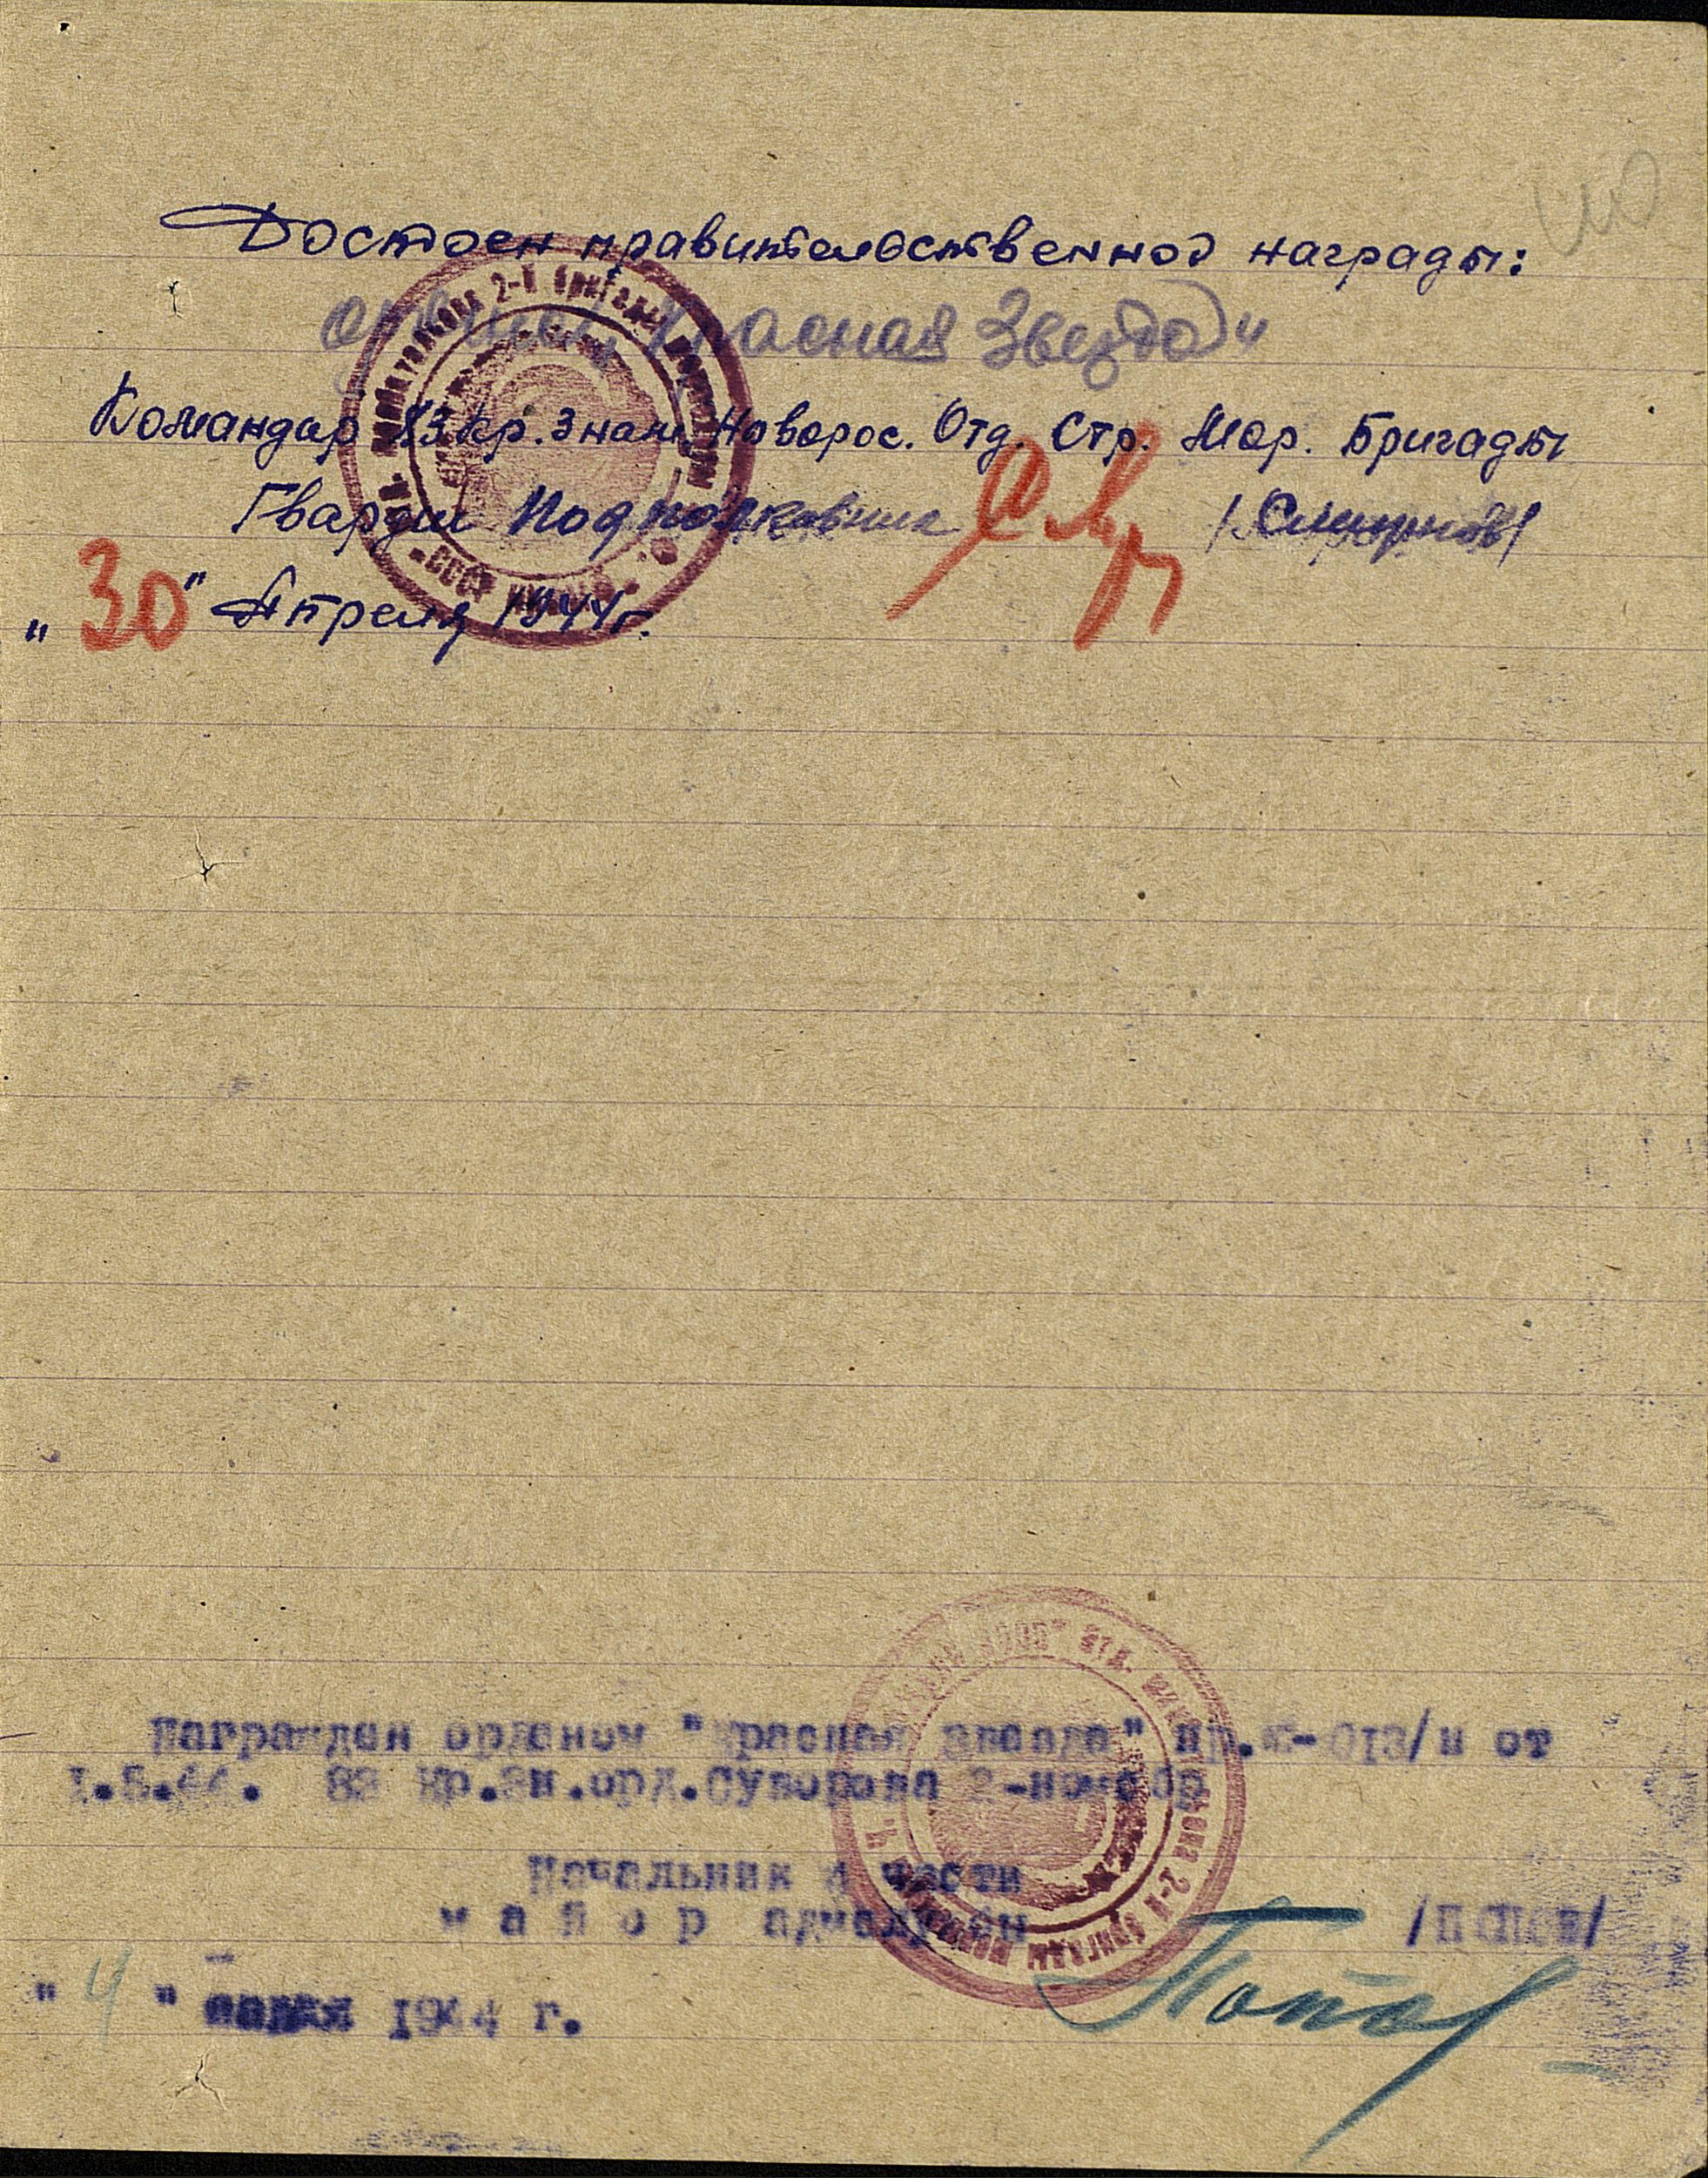 Достоен правительственной награды:
орденом "Красная Звезда"
Командир 83 Кр. Знам. Новорос. Отд. Стр. Мор. Бригады
Гвардии Подполковник /Смирнов/
"30" Апреля 1944г.
Награжден орденом "Красная звезда" пр. от
1.5.44. 83 Кр.Зн.орд.Суворова 2-й
Начальник 4 части
майор адм.
/ПОПОВ/
Попов
"4" 1944 г.